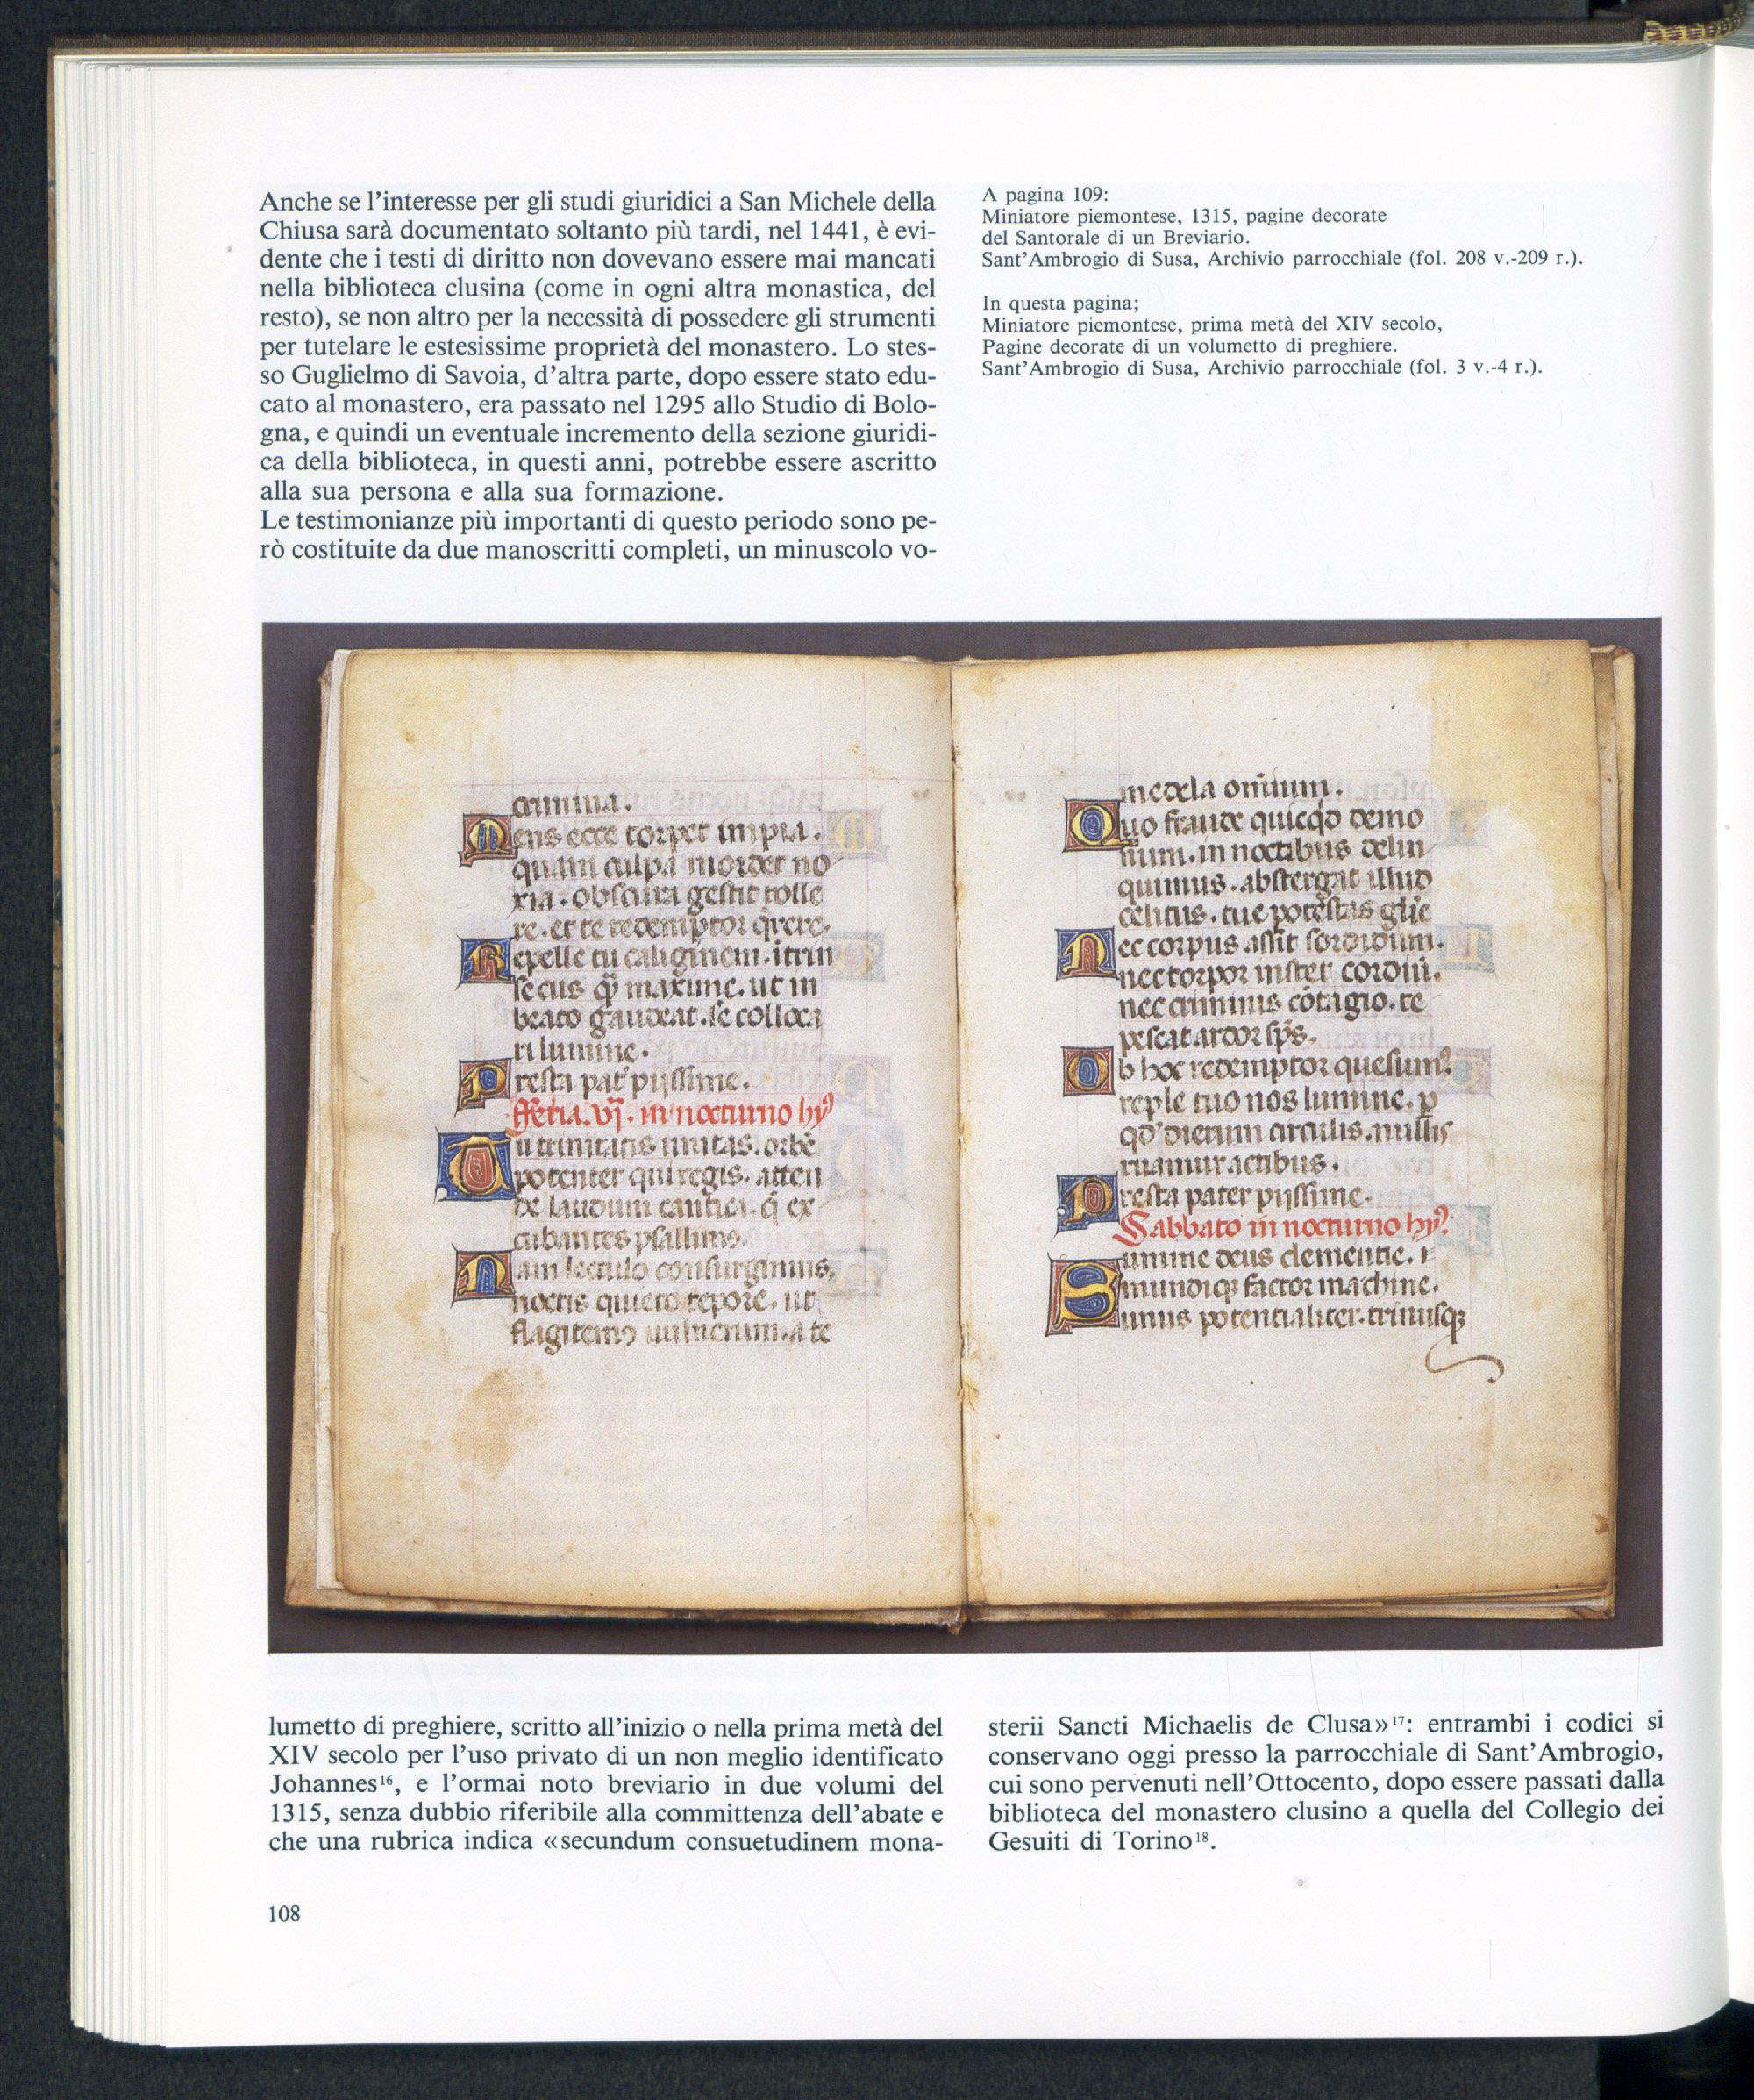 Anche se l'interesse per gli studi giuridici a San Michele della
Chiusa sarà documentato soltanto più tardi, nel 1441, è evi-
dente che i testi di diritto non dovevano essere mai mancati
nella biblioteca clusina (come in ogni altra monastica, del
resto), se non altro per la necessità di possedere gli strumenti
per tutelare le estesissime proprietà del monastero. Lo stes-
so Guglielmo di Savoia, d'altra parte, dopo essere stato edu-
cato al monastero, era passato nel 1295 allo Studio di Bolo-
gna, e quindi un eventuale incremento della sezione giuridi-
ca della biblioteca, in questi anni, potrebbe essere ascritto
alla sua persona e alla sua formazione.
Le testimonianze più importanti di questo periodo sono pe-
rò costituite da due manoscritti completi, un minuscolo vo-
A pagina 109:
Miniatore piemontese, 1315, pagine decorate
del Santorale di un Breviario.
Sant'Ambrogio di Susa, Archivio parrocchiale (fol. 208 v.-209 r.).
In questa pagina;
Miniatore piemontese, prima metà del XIV secolo,
Pagine decorate di un volumetto di preghiere.
Sant'Ambrogio di Susa, Archivio parrocchiale (fol. 3 v.-4 r.).
crimina.
Mens ecce torpet impia.
quam culpa mordet no
xia. obscura gestit tolle
re. et te redemptor q̄rere.
Repelle tu caliginem. itrin
secus q̄ maxime. ut in
beato gaudeat. se colloca
ri lumine.
Presta pat' pijssime.
Feria. vj. in nocturno hy
Tu trinitatis unitas. orbē
potenter qui regis. atten
de laudum cantica. q̄ ex
cubantes psallimus.
Nam lectulo consurgimus,
noctis quieto tempore. ut
flagitemus uulnerum. a te
medela omīum.
Quo fraude quicqd demo
num. in noctibus delin
quimus. abstergat illud
celitus. tue potestas glīe
Nec corpus assit sordidum.
nec torpor instet cordiū.
nec criminis cōtagio. te
pescat ardor sp̄s.
Ob hoc redemptor quesum9
reple tuo nos lumine. p
qd' dierum circulis. nullis
ruamur actibus.
Presta pater pijssime.
Sabbato in nocturno hy
Summe deus clementie.
mundiq; factor machine.
unus potentialiter. trinusq;
lumetto di preghiere, scritto all'inizio o nella prima metà del
XIV secolo per l'uso privato di un non meglio identificato
Johannes¹⁶, e l'ormai noto breviario in due volumi del
1315, senza dubbio riferibile alla committenza dell'abate e
che una rubrica indica «secundum consuetudinem mona-
sterii Sancti Michaelis de Clusa»¹⁷: entrambi i codici si
conservano oggi presso la parrocchiale di Sant'Ambrogio,
cui sono pervenuti nell'Ottocento, dopo essere passati dalla
biblioteca del monastero clusino a quella del Collegio dei
Gesuiti di Torino¹⁸.
108